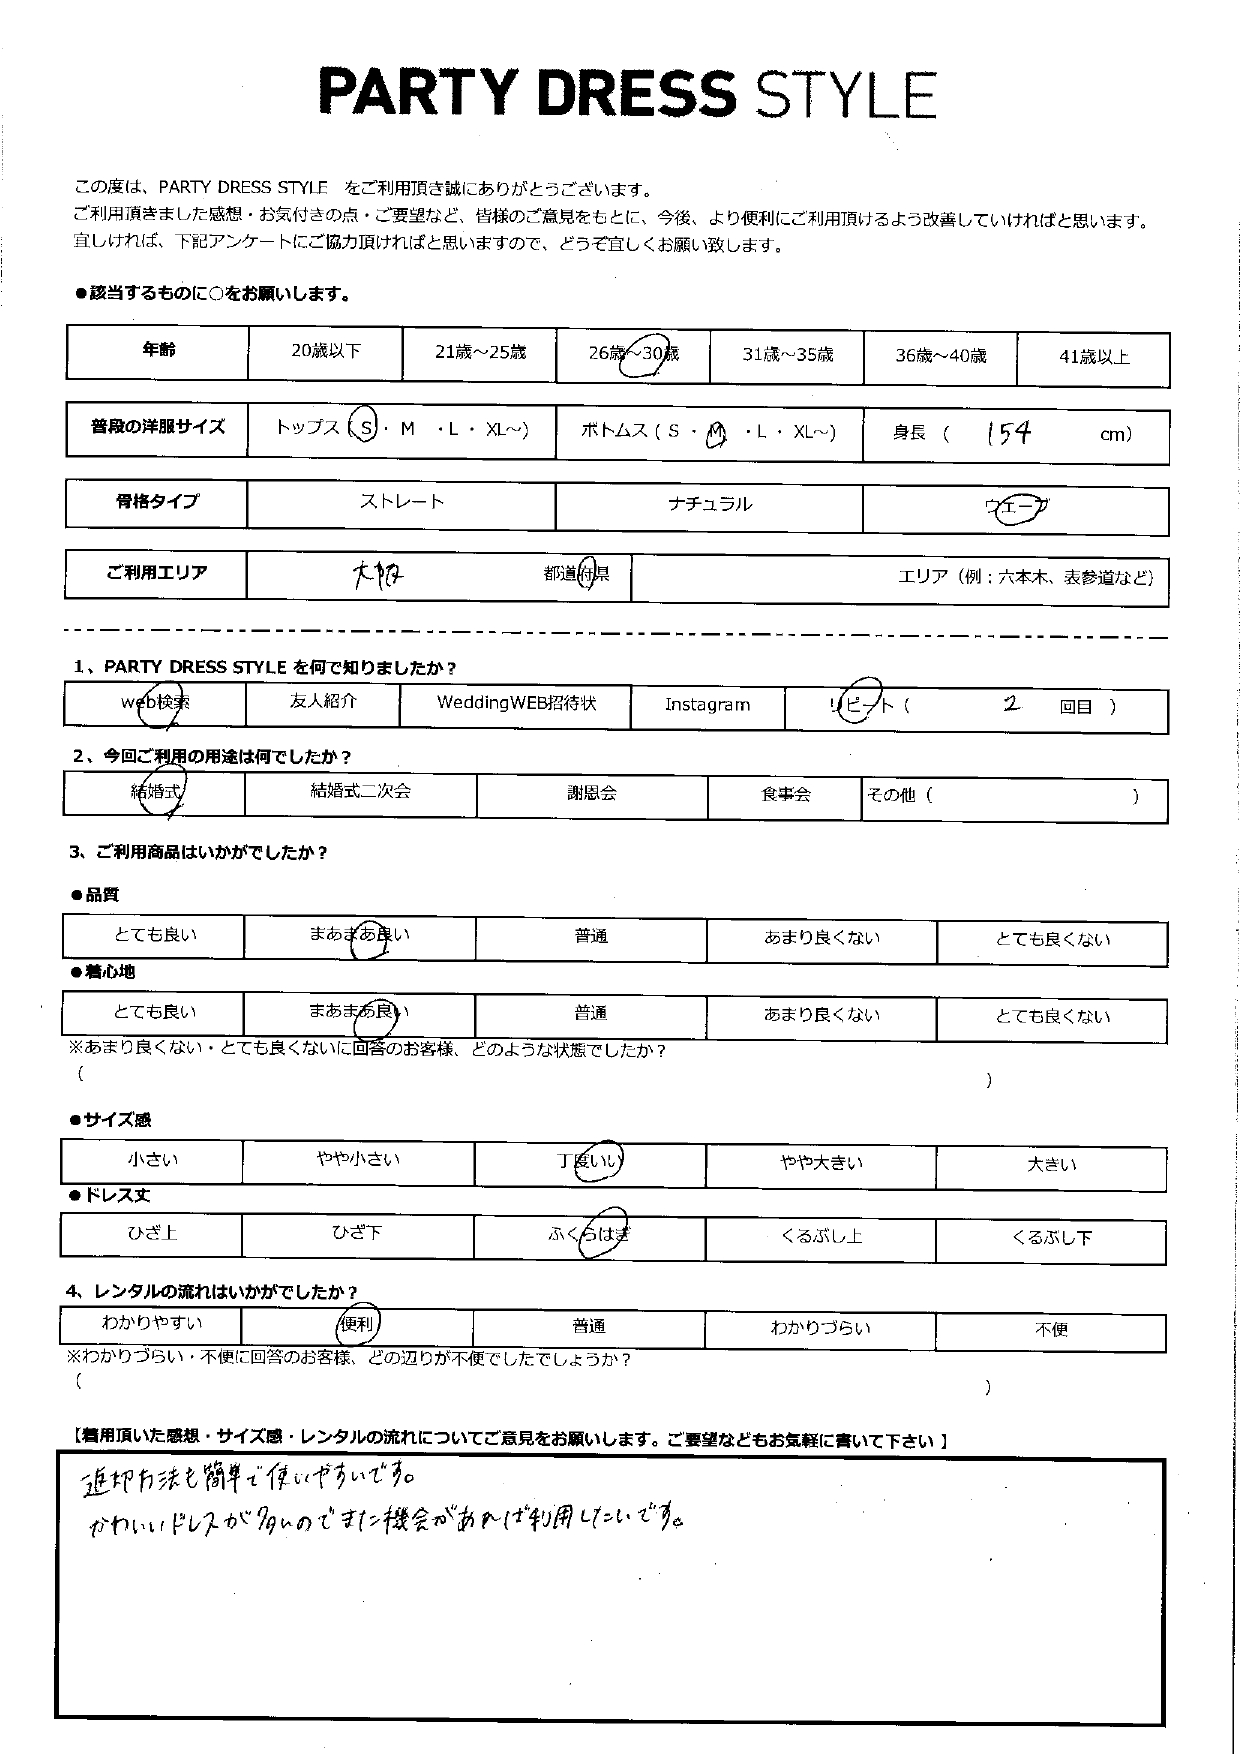 PARTY DRESS STYLE
この度は、PARTY DRESS STYLE をご利用頂き誠にありがとうございます。
ご利用頂きました感想・お気付きの点・ご要望など、皆様のご意見をもとに、今後、より便利にご利用頂けるよう改善していければと思います。
宜しければ、下記アンケートにご協力頂ければと思いますので、どうぞ宜しくお願い致します。
●該当するものに○をお願いします。
年齢 20歳以下 21歳～25歳 26歳～30歳 31歳～35歳 36歳～40歳 41歳以上
普段の洋服サイズ トップス (S・ M ・L・ XL～) ボトムス ( S ・ M ・L・ XL～) 身長 ( 154 cm)
骨格タイプ ストレート ナチュラル ウェーブ
ご利用エリア 大阪 都道府県 エリア（例：六本木、表参道など）
1、PARTY DRESS STYLE を何で知りましたか？
web検索 友人紹介 WeddingWEB招待状 Instagram リピート（ 2 回目 ）
2、今回ご利用の用途は何でしたか？
結婚式 結婚式二次会 謝恩会 食事会 その他（ ）
3、ご利用商品はいかがでしたか？
●品質
とても良い まあまあ良い 普通 あまり良くない とても良くない
●着心地
とても良い まあまあ良い 普通 あまり良くない とても良くない
※あまり良くない・とても良くないに回答のお客様、どのような状態でしたか？
( )
●サイズ感
小さい やや小さい 丁度いい やや大きい 大きい
●ドレス丈
ひざ上 ひざ下 ふくらはぎ くるぶし上 くるぶし下
4、レンタルの流れはいかがでしたか？
わかりやすい 便利 普通 わかりづらい 不便
※わかりづらい・不便に回答のお客様、どの辺りが不便でしたでしょうか？
( )
【着用頂いた感想・サイズ感・レンタルの流れについてご意見をお願いします。ご要望などもお気軽に書いて下さい 】
返却方法も簡単で使いやすいです。
かわいいドレスが多いのでまた機会があれば利用したいです。